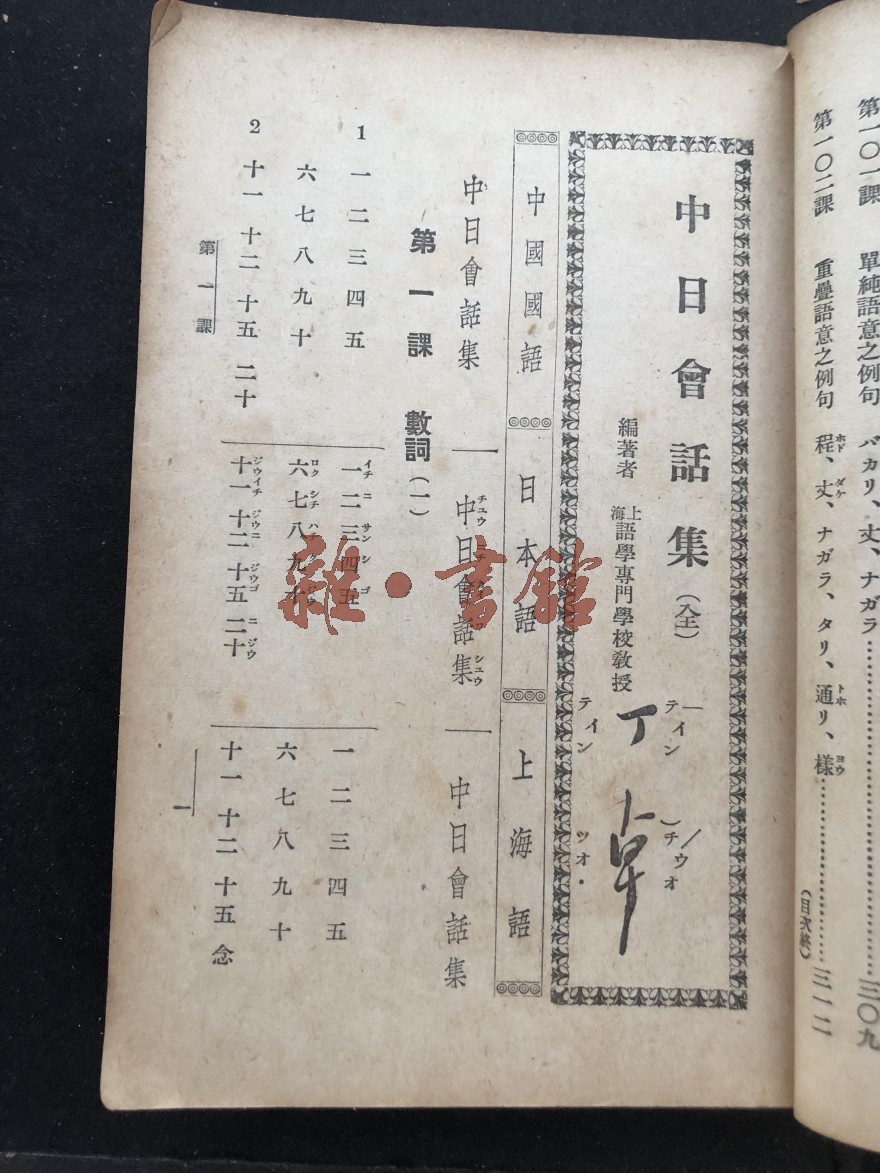 第一〇一課 單純語意之例句 バカリ、丈、ナガラ……三〇九
第一〇二課 重疊語意之例句 程、丈、ナガラ、タリ、通リ、樣……三一二
ホド ダケ トホ ヨウ
(目次終)
中日會話集(全)
編著者 上海語學專門學校教授 丁卓
テイン チウオ
テイン ツオ・
中國國語 日本語 上海語
中日會話集 中日會話集 中日會話集
チユウ シュウ
第一課 數詞(一)
1 一二三四五
イチ ニ サン シ ゴ
一二三四五
一二三四五
六七八九十
ロク シチ ハチ
六七八九十
六七八九十
2 十一 十二 十五 二十
ジウイチ ジウニ ジウゴ ニジウ
十一 十二 十五 二十
十一 十二 十五 念
第一課
一
雜·書館